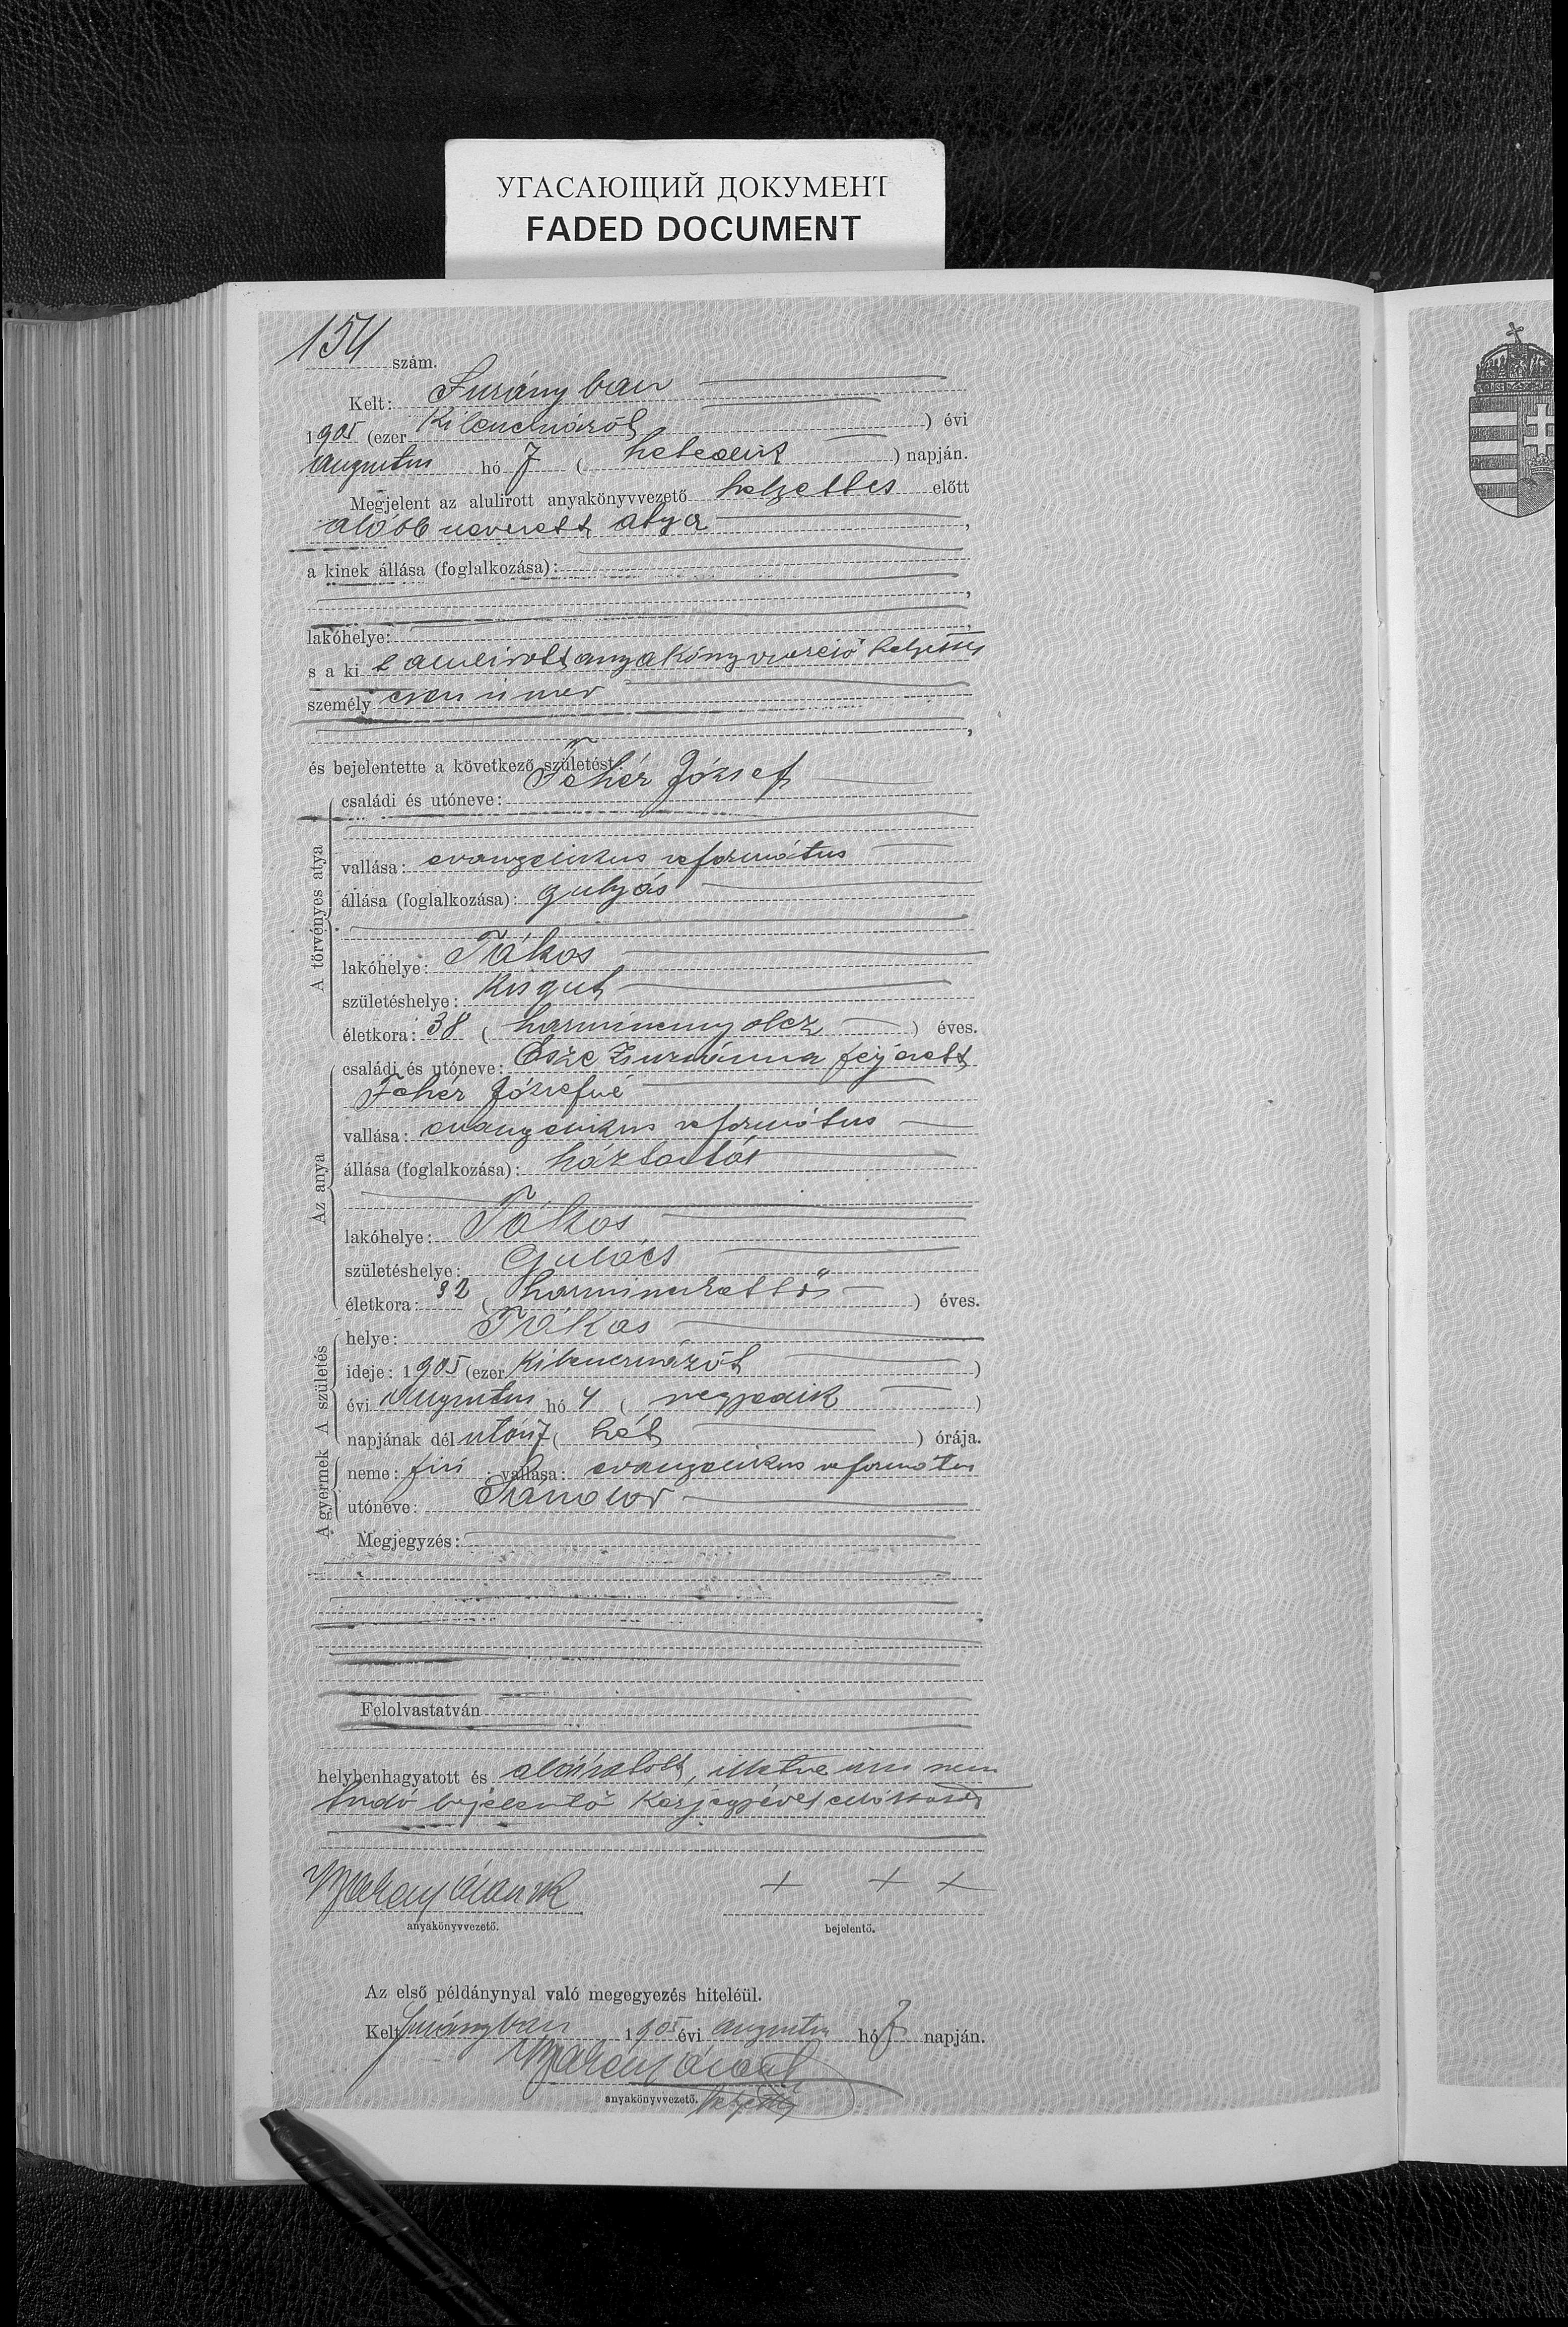 УГАСАЮЩИЙ ДОКУМЕНТ
FADED DOCUMENT
154 szám.
Kelt: Surányban
1905 (ezer kilenczszázöt ) évi
augusztus hó 7 ( hetedik ) napján.
Megjelent az alulirott anyakönyvvezető helyettes előtt
alább nevezett atya ,
a kinek állása (foglalkozása):
,
lakóhelye: ,
s a ki alulirott anyakönyvvezető helyettes
személy
,
és bejelentette a következő születést:
A törvényes atya
családi és utóneve: Fehér József
vallása: evangelikus református
állása (foglalkozása): gulyás
lakóhelye: Tákos
születéshelye: Kisgut
életkora: 38 ( harmincznyolcz ) éves.
Az anya
családi és utóneve: Esze Zsuzsánna férjezett
Fehér Józsefné
vallása: evangelikus református
állása (foglalkozása): háztartás
lakóhelye: Tákos
születéshelye: Gulács
életkora: 32 ( harminczkettő ) éves.
A születés
helye: Tákos
ideje: 1905 (ezer kilenczszázöt )
évi augusztus hó 4 ( negyedik )
napjának dél után 7 ( hét ) órája.
A gyermek
neme: fiú ; vallása: evangelikus református
utóneve: Sándor
Megjegyzés:
Felolvastatván
helybenhagyatott és aláiratott, illetve irni nem
tudó bejelentő kézjegyével elláttatott
+ + +
anyakönyvvezető. bejelentő.
Az első példánynyal való megegyezés hiteléül.
Kelt Surányban 1905 évi augusztus hó 7 napján.
anyakönyvvezető. helyettes